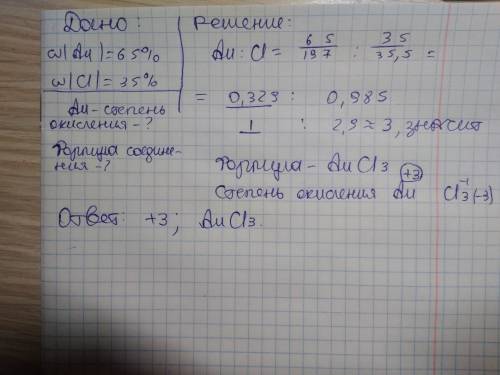 Дано:
ω(Au)=65%
ω(Cl)=35%
Au-степень
окисления-?
Формула соедине-
ния-?
Решение:
Au:Cl= 65/197 : 35/35,5 =
= 0,329 : 0,985
1 : 2,9≈3, значит
Формула- AuCl3
Степень окисления Au +3 Cl3 -1 (-3)
Ответ: +3; AuCl3.